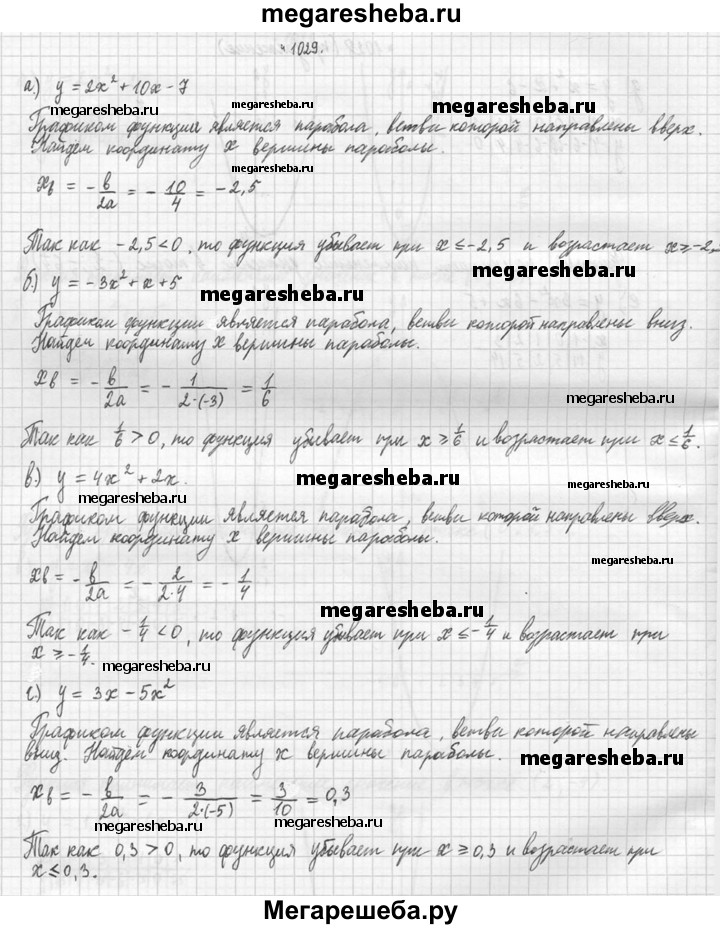 megaresheba.ru
1029.
а) y = 2x² + 10x - 7
megaresheba.ru
megaresheba.ru
Графиком функции является парабола, ветви которой направлены вверх.
Найдем координату x вершины параболы.
xв = - в/2a = - 10/4 = -2,5
megaresheba.ru
megaresheba.ru
Так как -2,5<0, то функция убывает при x ≤ -2,5 и возрастает x ≥ -2,
megaresheba.ru
б) y = -3x² + x + 5
megaresheba.ru
Графиком функции является парабола, ветви которой направлены вниз.
Найдем координату x вершины параболы.
xв = - в/2a = - 1/2·(-3) = 1/6
megaresheba.ru
megaresheba.ru
Так как 1/6 > 0, то функция убывает при x ≥ 1/6 и возрастает при x ≤ 1/6.
в) y = 4x² + 2x.
megaresheba.ru
megaresheba.ru
Графиком функции является парабола, ветви которой направлены вверх.
Найдем координату x вершины параболы.
megaresheba.ru
xв = - в/2a = - 2/2·4 = - 1/4
megaresheba.ru
Так как - 1/4 < 0, то функция убывает при x ≤ - 1/4 и возрастает при
x ≥ - 1/4.
megaresheba.ru
г) y = 3x - 5x²
Графиком функции является парабола, ветви которой направлены
вниз. Найдем координату x вершины параболы.
megaresheba.ru
xв = - в/2a = - 3/2·(-5) = 3/10 = 0,3
megaresheba.ru
megaresheba.ru
Так как 0,3 > 0, то функция убывает при x ≥ 0,3 и возрастает при
x ≤ 0,3.
Мегарешеба.ру